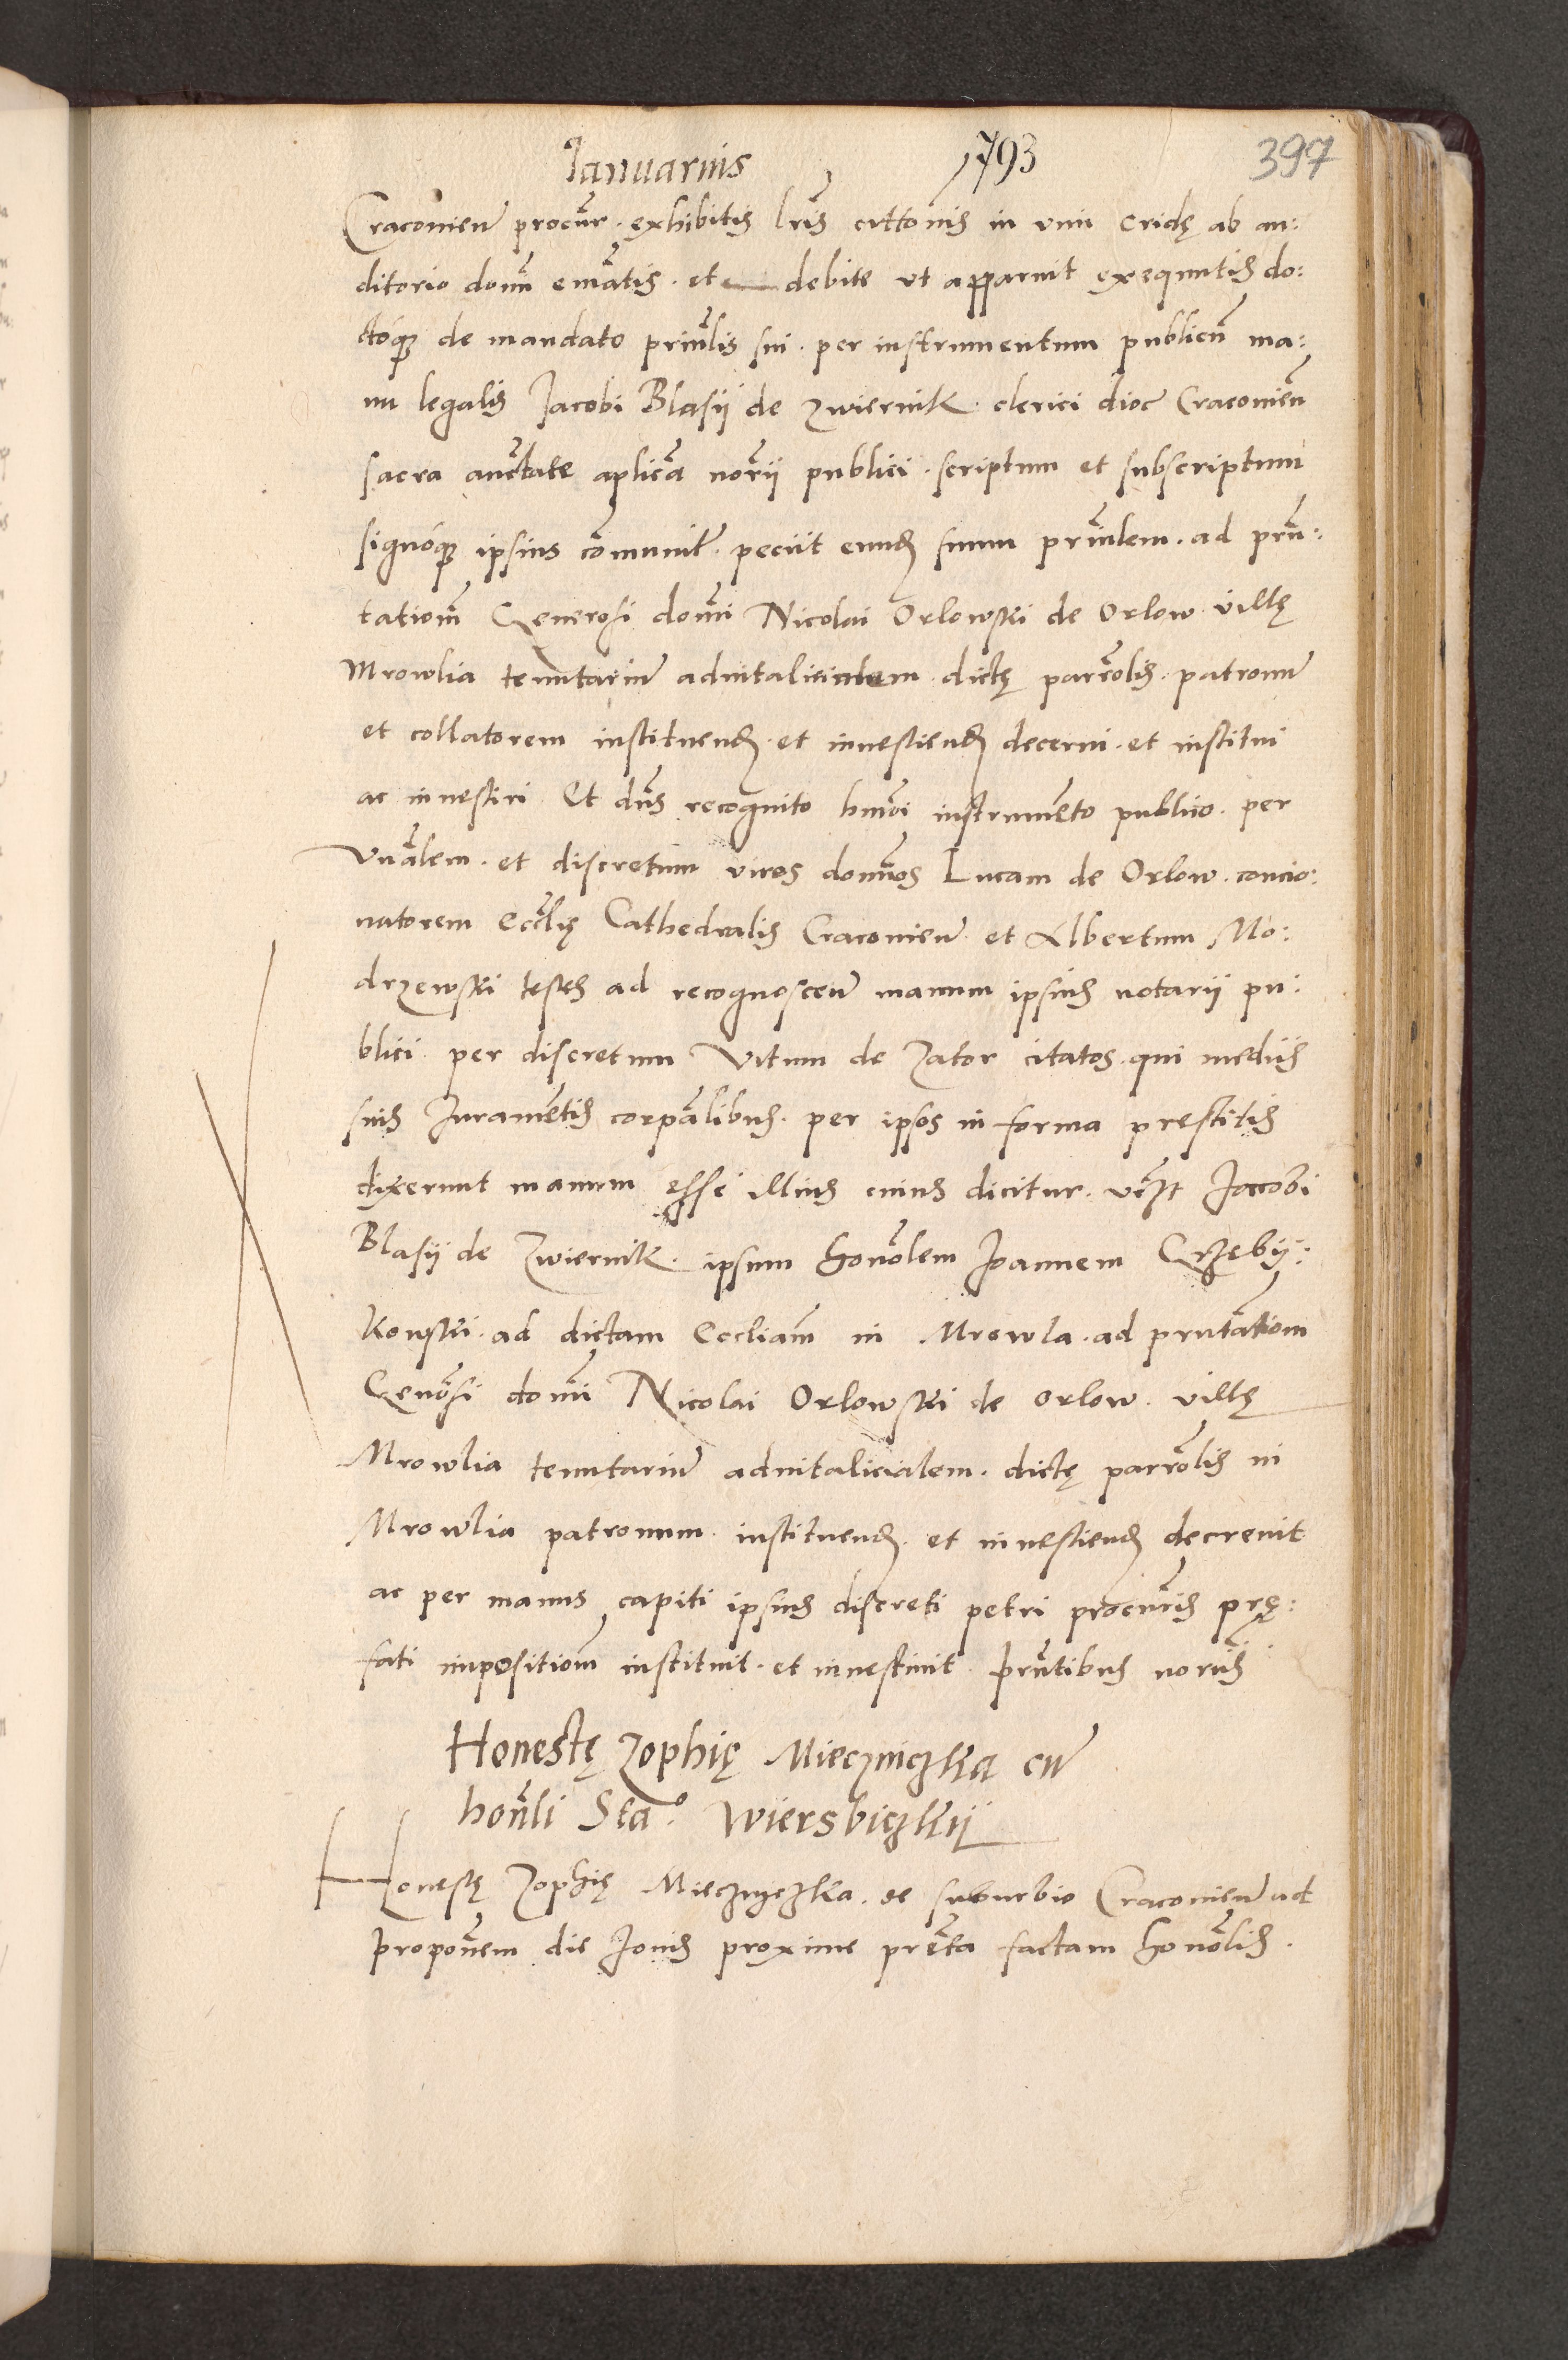 Ianuarius 1793 397
Cracovien procur. exhibitis lris citationis in vim cridę ab au:
ditorio domi emanatis. et debite vt apparuit exequutis do:
ctóque de mandato prinlis sui. per instrumentum publicum ma:
nu legalis Jacobi Blasii de Zwiernik. clerici dioc Cracovien
sacra auctate aplica norii publici. scriptum et subscriptum
signóque ipsius comunit. peciit eund suum prinlem. ad prn:
tationem Generosi domi Nicolai Orlowski de Orlow villę
Mrowlia tenutarium advitalicialem. dictę parrolis. patronum
et collatorem instituend. et investiend decerni. et institui
ac investiri Et dns recognito hmoi instrumento publico. per
Vnalem. et discretum viros domnos Lucam de Orlow. concio:
natorem Ecclię Cathedralis Cracovien et Albertum Mo:
drzewski testes ad recognoscen manum ipsius notarii pu:
blici. per discretum Vitum de Zator citatos. qui mediis
suis Juramentis corpalibus. per ipsos in forma prestitis
dixerunt manum esse illius cuius dicitur. vczt Jacobi
Blasii de Zwiernik. ipsum honolem Joannem Grzebÿ:
kowski. ad dictam Eccliam in Mrowla. ad prntationem
Genosi domi Nicolai Orlowski de Orlow. villę
Mrowlia tenutarium advitalicialem. dictę parrolis in
Mrowlia patronum. instituend. et investiend decrevit
ac per manus capiti ipsius discreti petri procuris prę:
fati impositionem instituit. et investivit. prntibus noriis
Honestę Zophię Mieczniczka cu
honli Sta. Wiersbiczkÿ
Honestę Zophię Miecznyczka. de suburbio Cracovien ad
proponem die Jovis proxime pręta factam honolis.